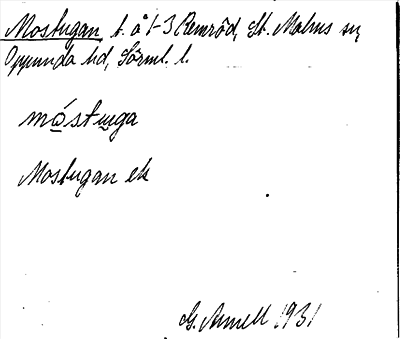 Mostugan t. å 1-3 Remröd, St. Malms sn,
Oppunda hd, Sörml. l.
måstuga
Mostugan ek
G. Annell 1931